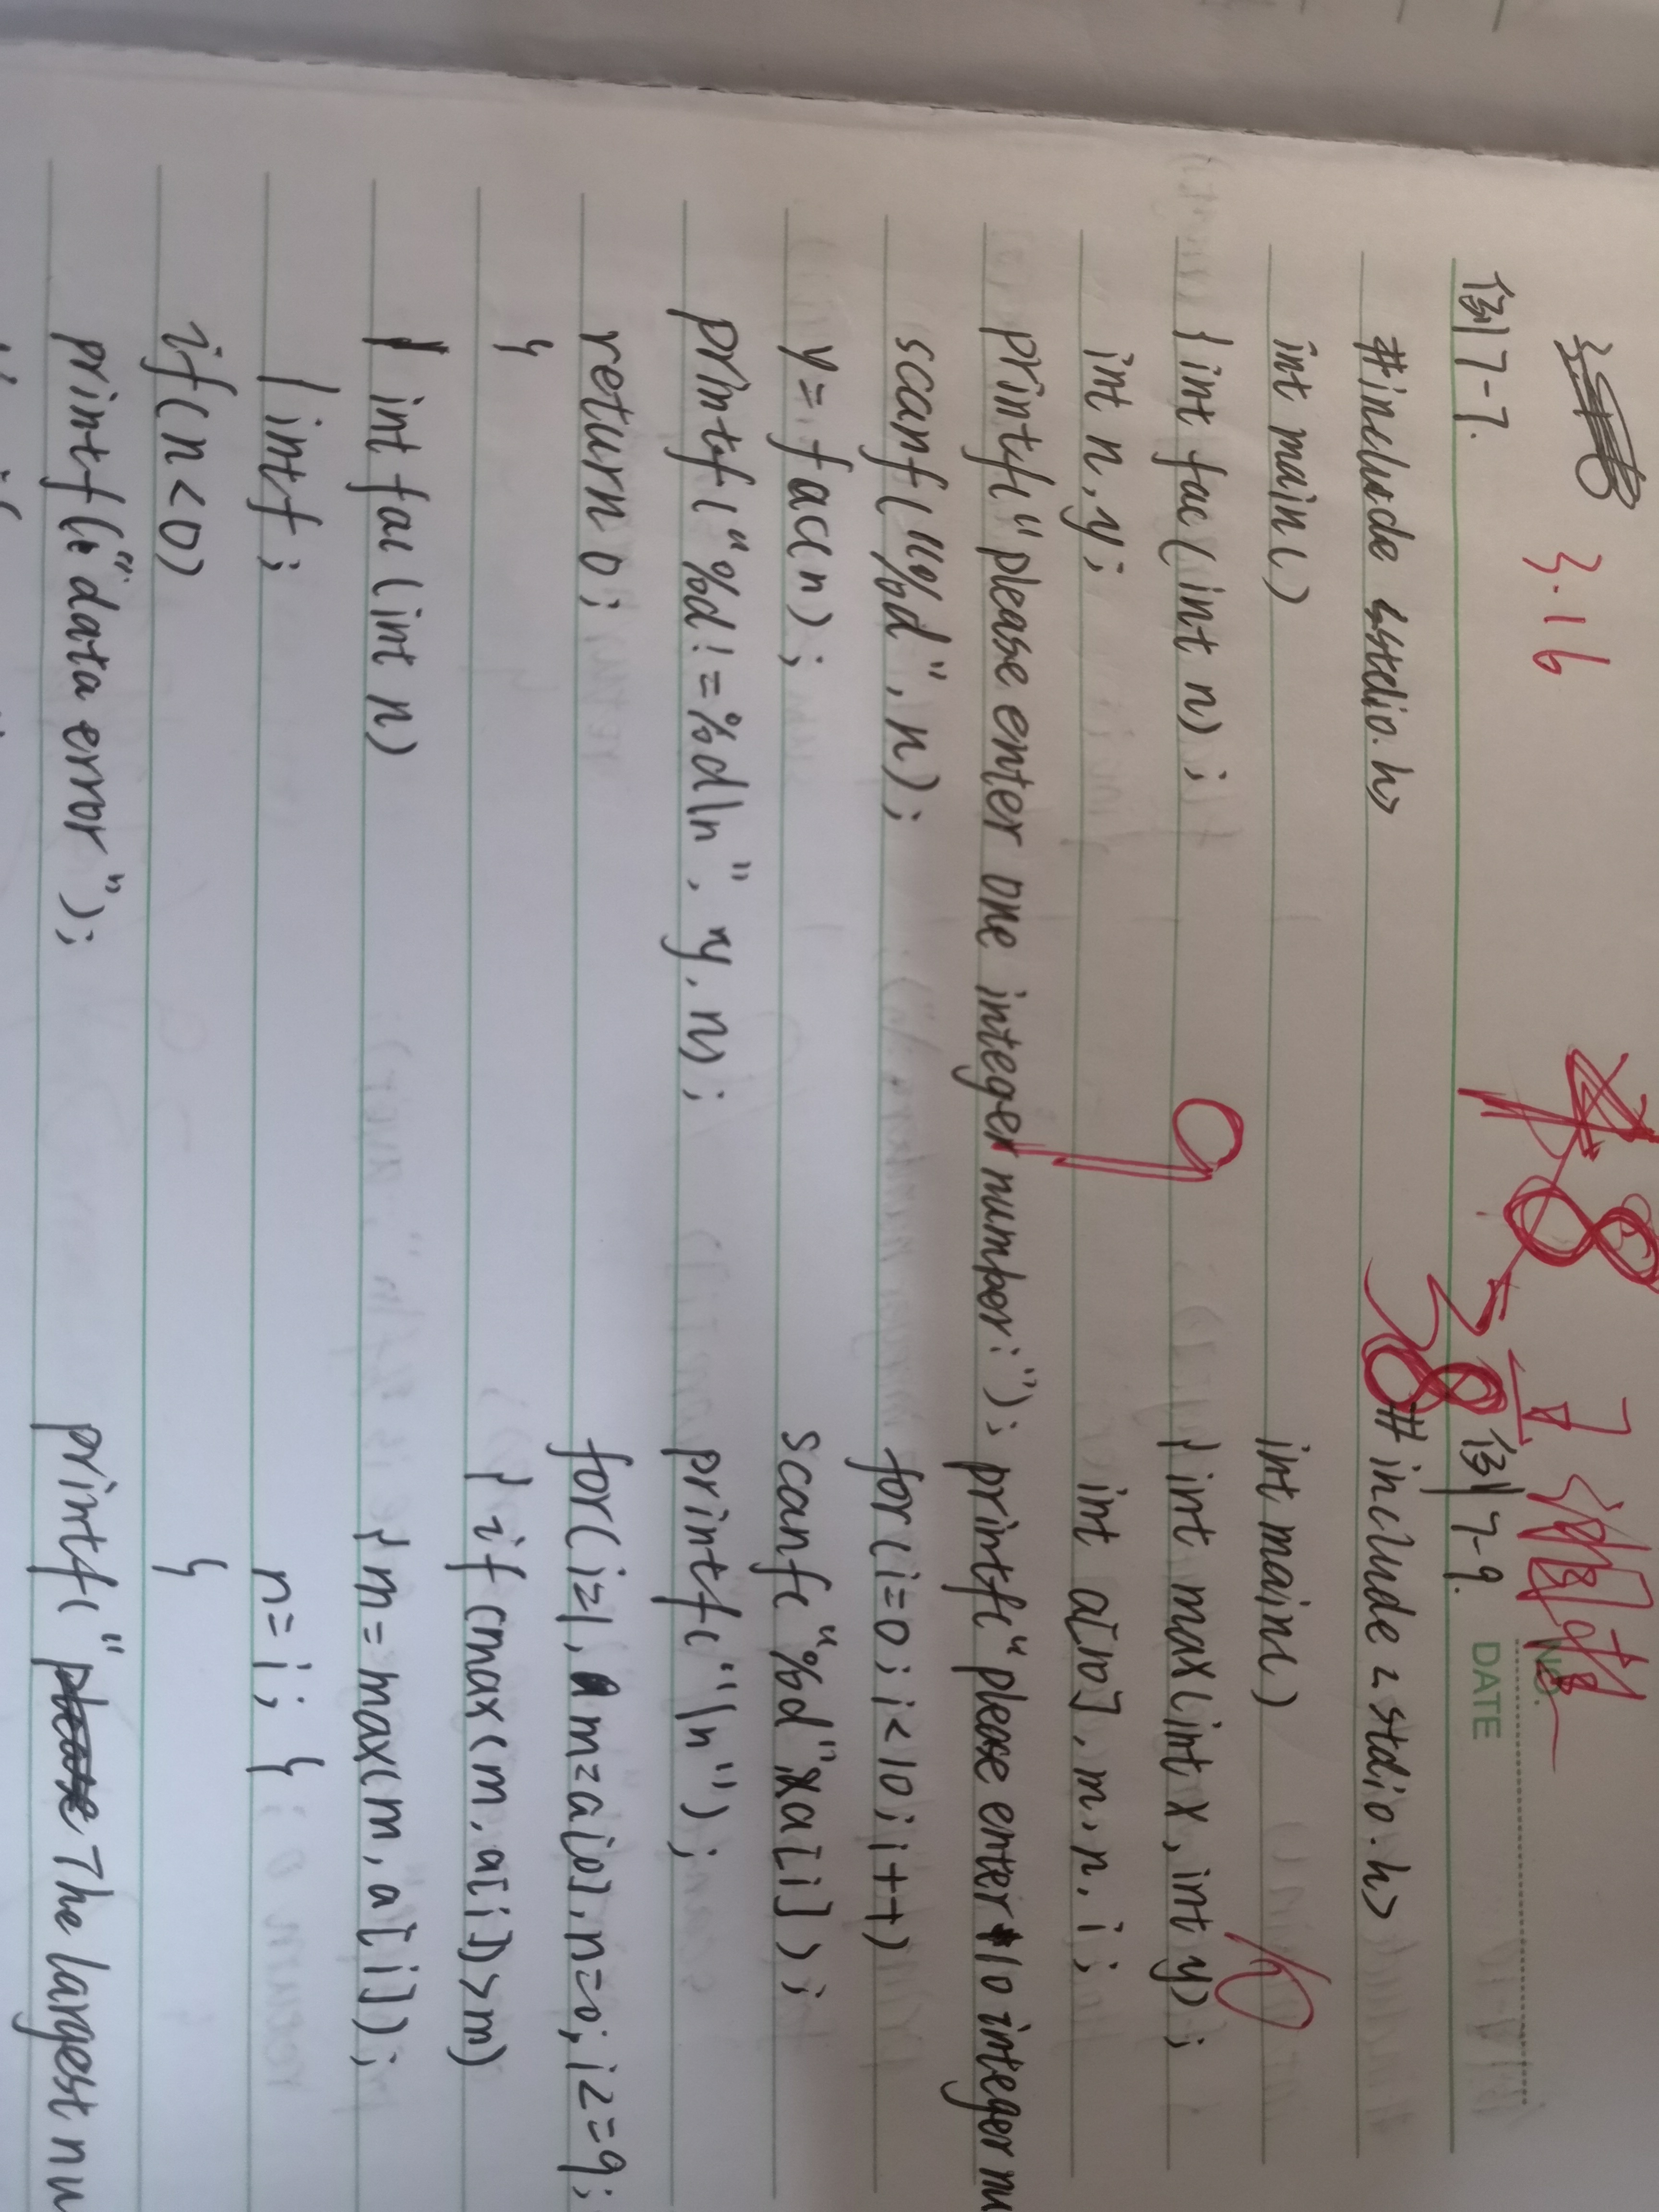 3.16
例7-7.
#include <stdio.h>
int main()
{ int fac(int n);
int n, y;
printf("please enter one integer number:");
scanf("%d", n);
y = fac(n);
printf("%d!=%d\n", y, n);
return 0;
}
int fac(int n)
{ int f;
if(n<0)
printf("data error");
9
8
38
NO.
DATE
例7-9.
#include <stdio.h>
int main()
10
{ int max(int x, int y);
int a[10], m, n, i;
printf("please enter 10 integer nu
for(i=0; i<10; i++)
scanf("%d",&a[i]);
printf("\n");
for(i=1, m=a[0], n=0; i<=9;
{ if(max(m, a[i])>m)
{ m=max(m, a[i]);
n=i; }
}
printf("The largest nu